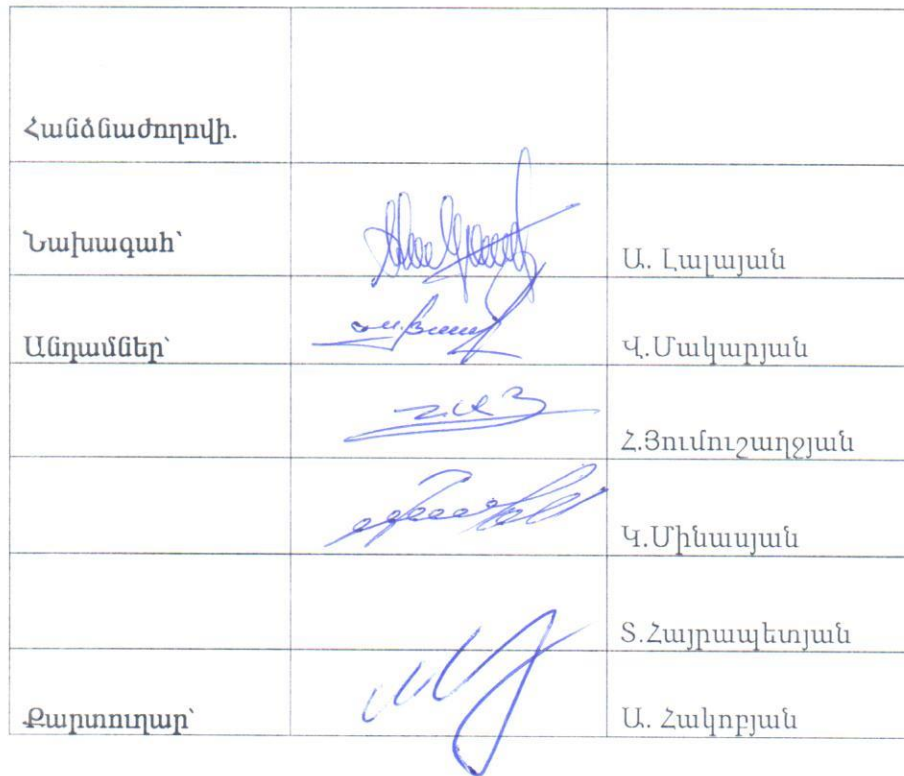 Հանձնաժողովի.
Նախագահ՝ Ա. Լալայան
Անդամներ՝ Վ.Մակարյան
Հ.Յումուշաղջյան
Կ.Մինասյան
Տ.Հայրապետյան
Քարտուղար՝ Ա. Հակոբյան